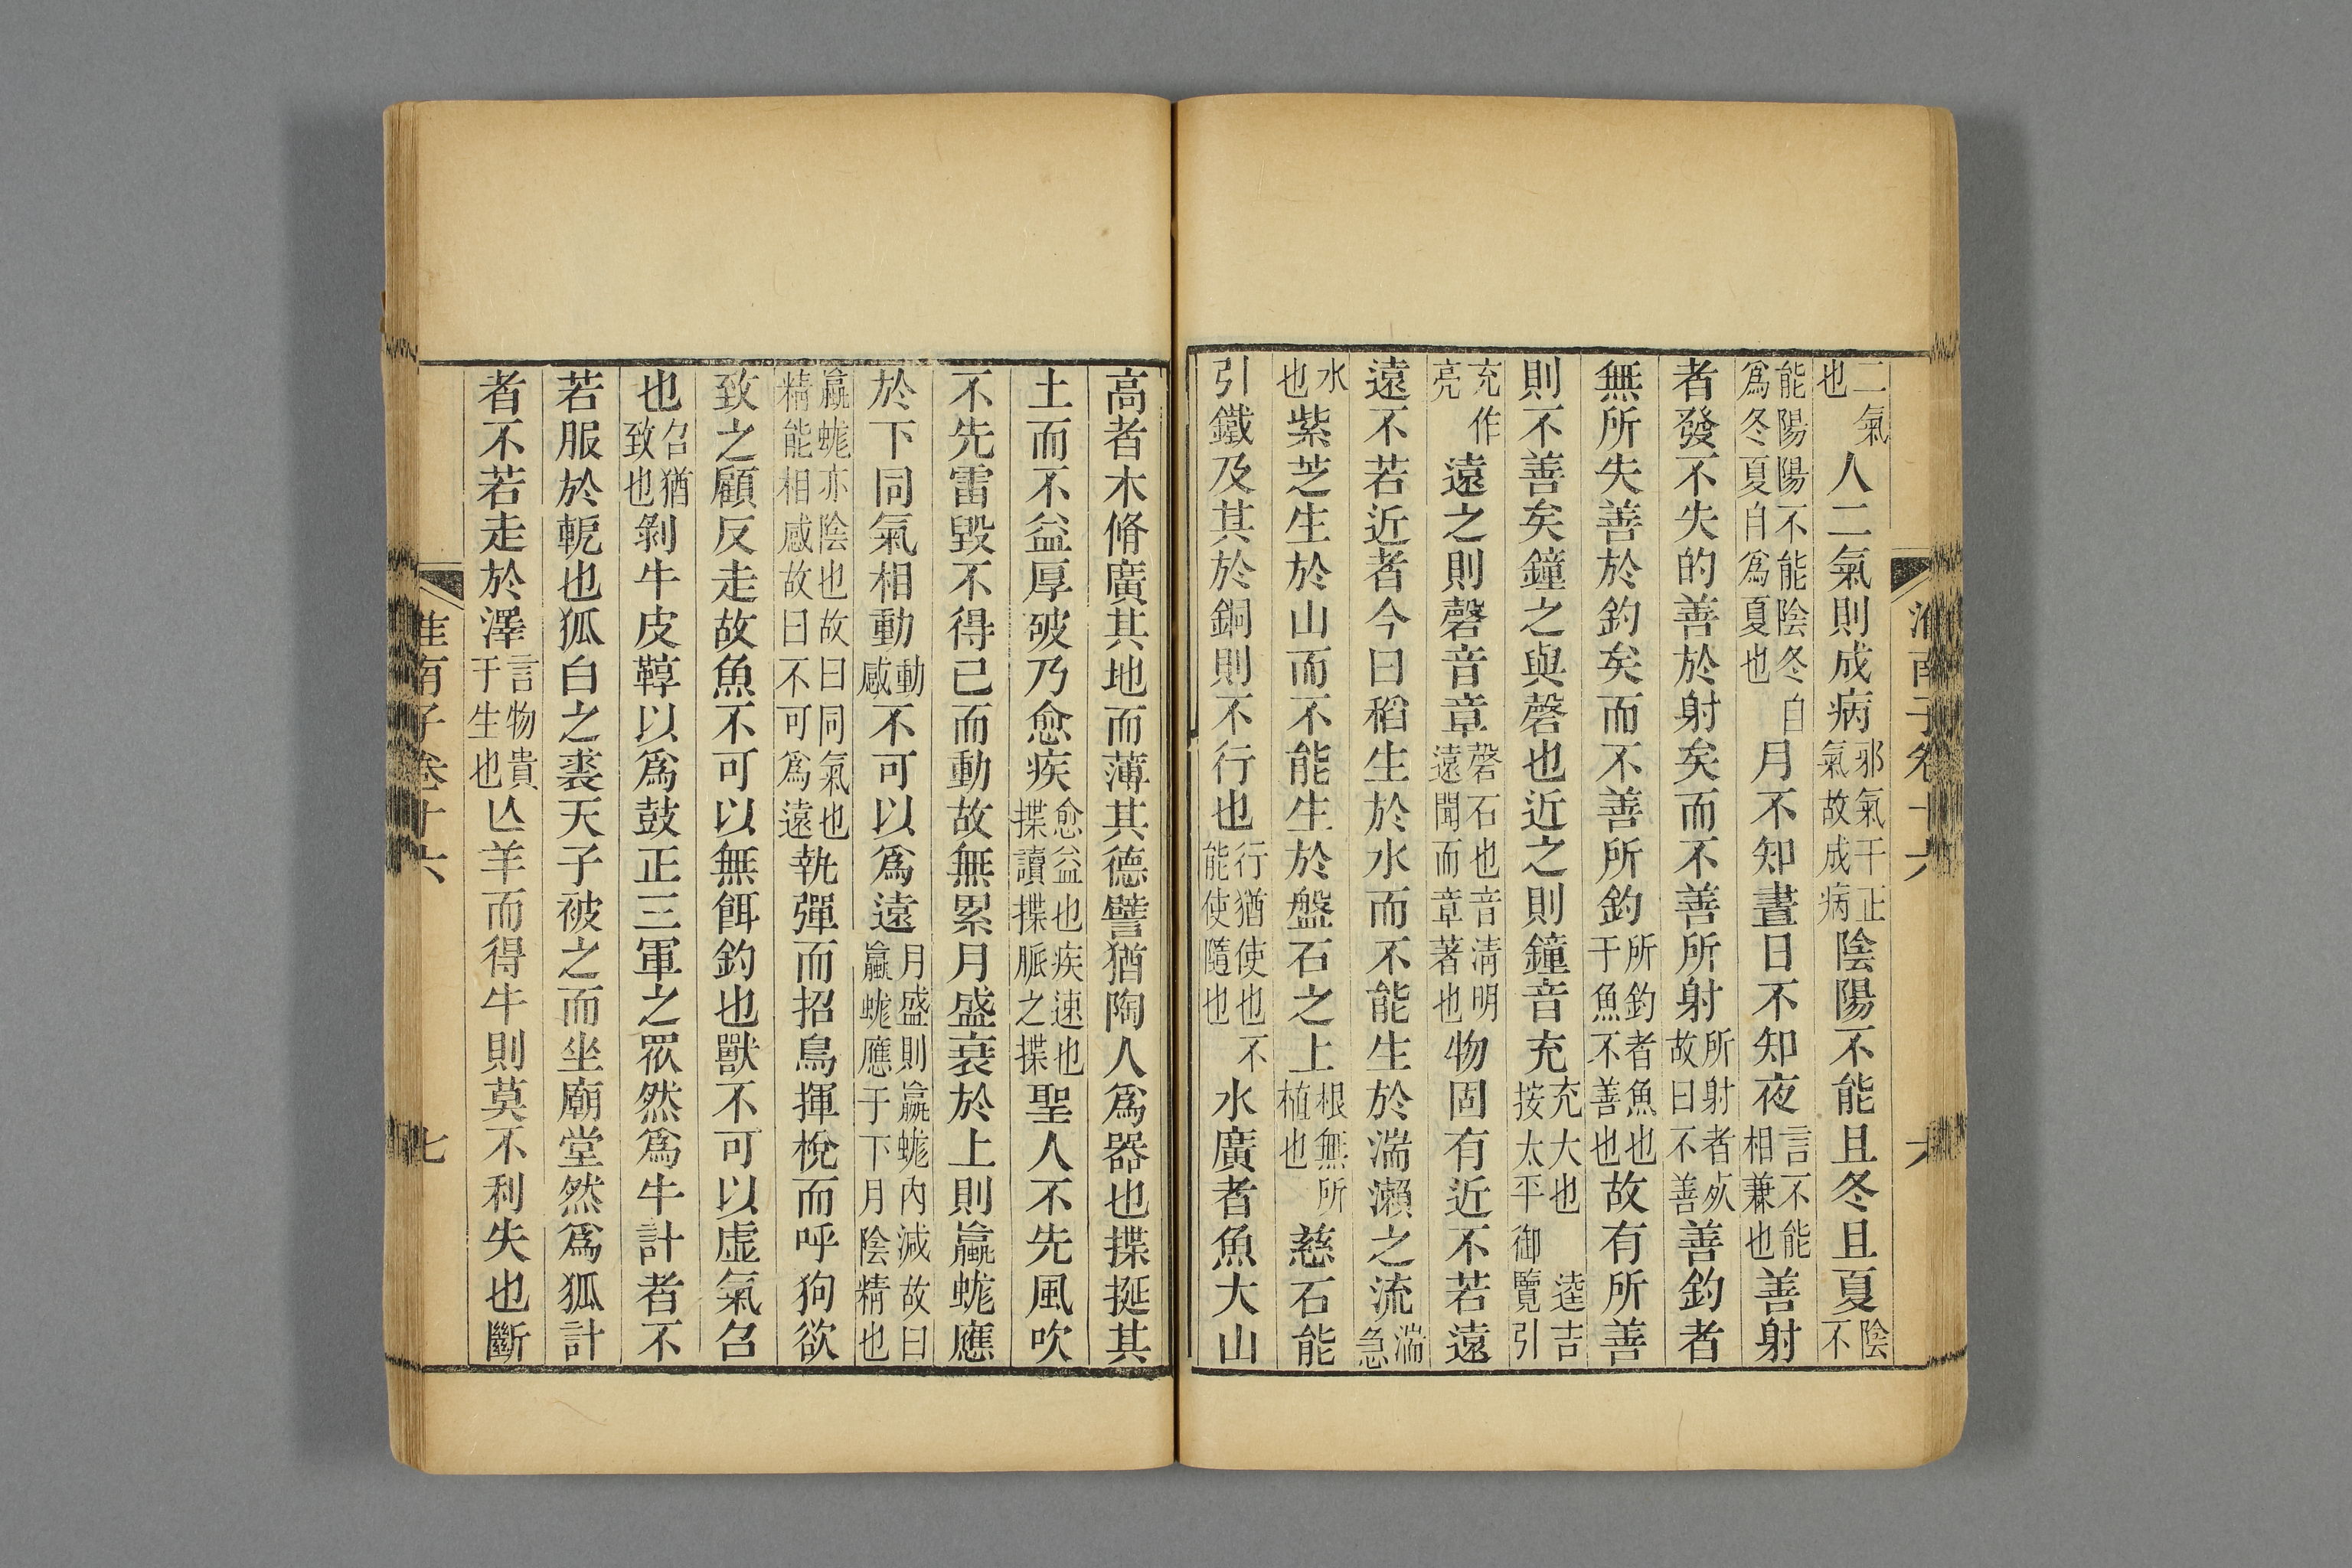 二氣也人二氣則成病邪氣干正氣故成病陰陽不能且冬且夏陰不
能陽陽不能陰冬自爲冬夏自爲夏也月不知晝日不知夜言不能相兼也善射
者發不失的善於射矣而不善所射所射者死故曰不善善釣者
無所失善於釣矣而不善所釣所釣者魚也于魚不善也故有所善
則不善矣鐘之與磬也近之則鐘音充充大也逵吉按太平御覽引
充作亮遠之則磬音章磬石也音清明遠聞而章著也物固有近不若遠
遠不若近者今曰稻生於水而不能生於湍瀨之流湍急
水也紫芝生於山而不能生於盤石之上根無所植也慈石能
引鐵及其於銅則不行也行猶使也不能使隨也水廣者魚大山
高者木脩廣其地而薄其德譬猶陶人爲器也揲挻其
土而不益厚破乃愈疾愈益也疾速也揲讀揲脈之揲聖人不先風吹
不先雷毀不得已而動故無累月盛衰於上則蠃蛖應
於下同氣相動動感不可以爲遠月盛則蠃蛖內減故曰蠃蛖應于下月陰精也
蠃蛖亦陰也故曰同氣也精能相感故曰不可爲遠執彈而招鳥揮梲而呼狗欲
致之顧反走故魚不可以無餌釣也獸不可以虛氣召
也召猶致也剝牛皮鞟以爲鼓正三軍之眾然爲牛計者不
若服於軛也狐白之裘天子被之而坐廟堂然爲狐計
者不若走於澤言物貴于生也亾羊而得牛則莫不利失也斷
淮南子卷十六
七